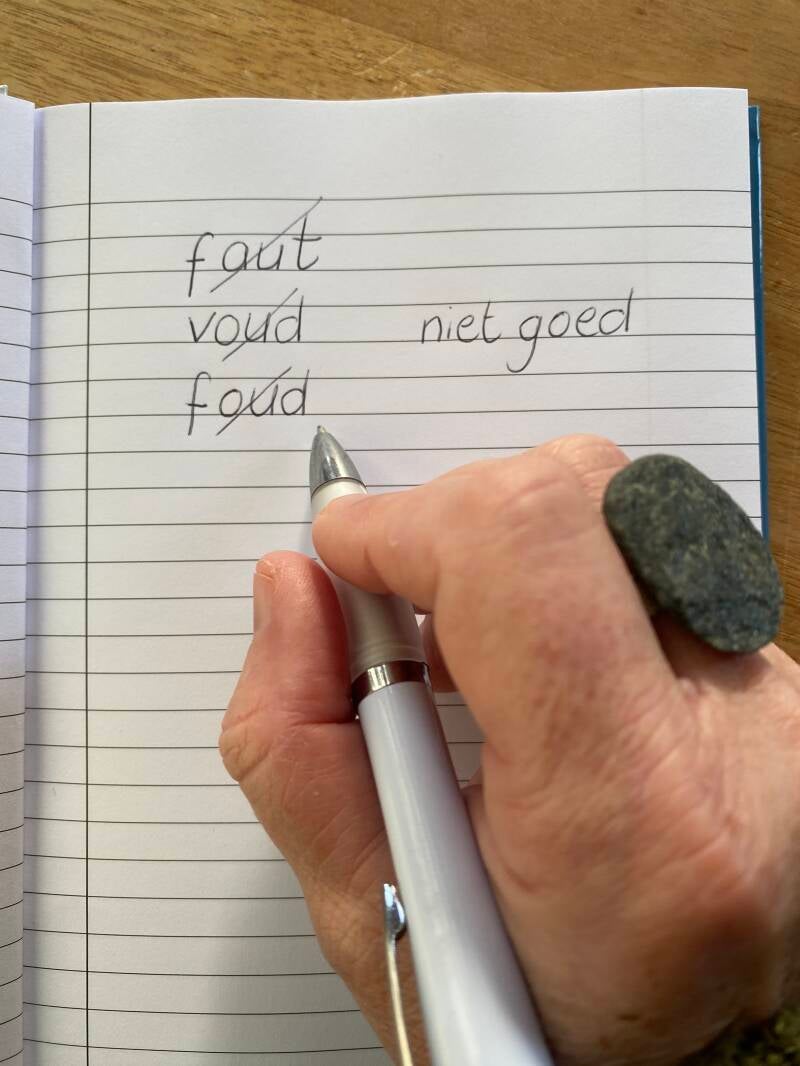 faut
voud niet goed
foud